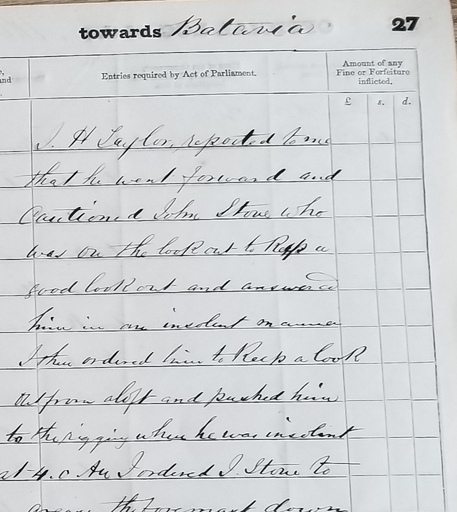 towards Batavia 27
Entries required by Act of Parliament.
Amount of any
Fine or Forfeiture
inflicted.
£ s. d.
J. H Taylor, reported to me
that he went forward and
Cautioned John Stove who
was on the look out to Keep a
good look out and answered
him in an insolent manner
I then ordered him to Keep a look
out from aloft and pushed him
to the rigging when he was insolent
at 4. I ordered J. Stove to
the foremast down